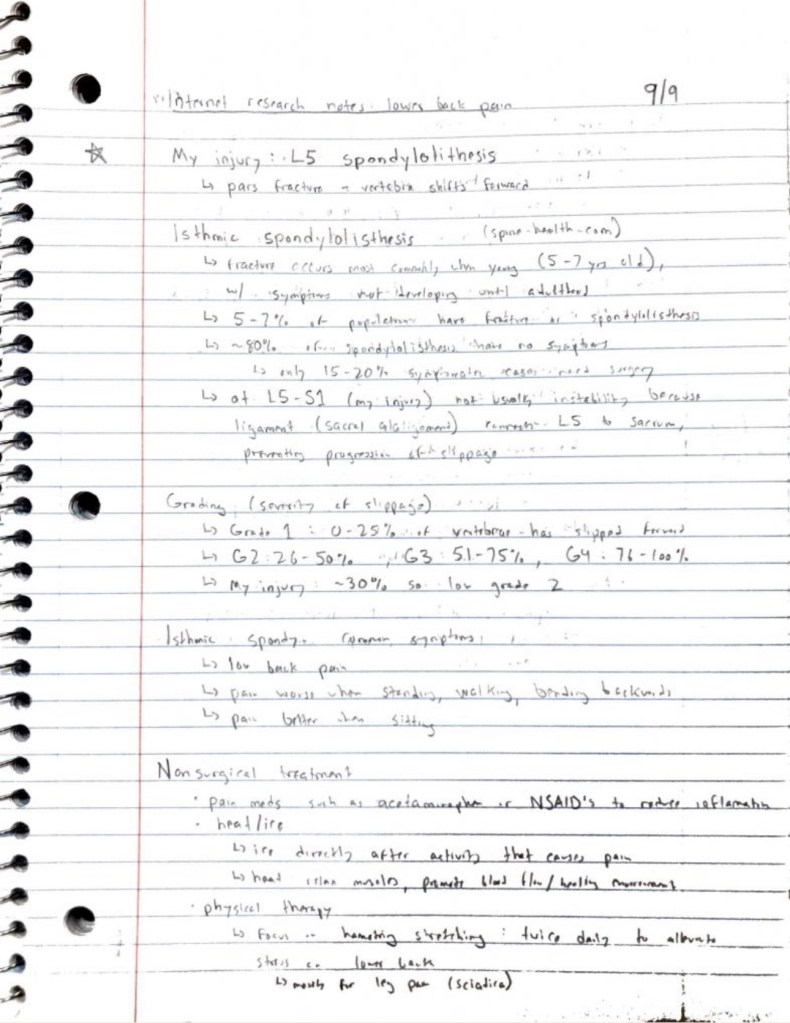 Internet research notes: lower back pain
9/9
☆ My injury: L5 spondylolithesis
↳ pars fracture → vertebra shifts forward
Isthmic spondylolisthesis (spine-health.com)
↳ fracture occurs most commonly when young (5-7 yrs old),
w/ symptoms not developing until adulthood
↳ 5-7% of population have fracture or spondylolisthesis
↳ ~80% of spondylolisthesis have no symptoms
↳ only 15-20% need surgery
↳ at L5-S1 (my injury) not usually instability because
ligament (sacral) connects L5 to sacrum,
preventing progression of slippage
Grading (severity of slippage)
↳ Grade 1: 0-25% of vertebrae has slipped forward
↳ G2: 26-50%, G3: 51-75%, G4: 76-100%
↳ My injury: ~30% so low grade 2
Isthmic spondy. common symptoms:
↳ low back pain
↳ pain worse when standing, walking, bending backwards
↳ pain better when sitting
Nonsurgical treatment
· pain meds such as acetaminophen or NSAID's to reduce inflammation
· heat/ice
↳ ice directly after activity that causes pain
↳ heat relax muscles, promote blood flow/healing environment
· physical therapy
↳ Focus on hamstring stretching: twice daily to alleviate
stress on lower back
↳ for leg pain (sciatica)